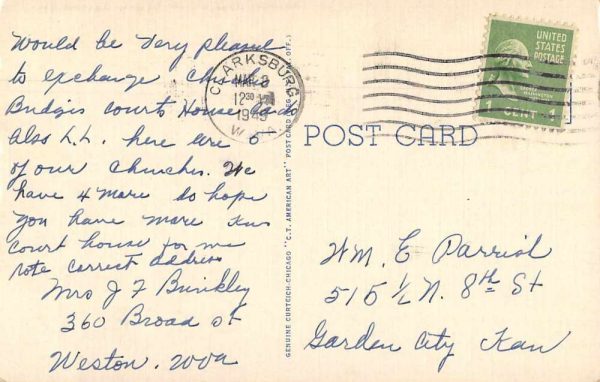 Would be very pleased
to exchange
Bridges courts House
also L.L. here are 6
of our churches. We
have 4 more do hope
you have more Kans
court house for me
note correct address
Mrs J F Brinkley
360 Broad St
Weston. WVa
CLARKSBURG
MAR 3
12 30 PM
1949
W. VA.
UNITED
STATES
POSTAGE
1 CENT
POST CARD
GENUINE CURTEICH-CHICAGO "C.T. AMERICAN ART" POST CARD (REG. U.S. PAT. OFF.)
WM. E Parrish
515 ½ N. 8th St
Garden City Kan